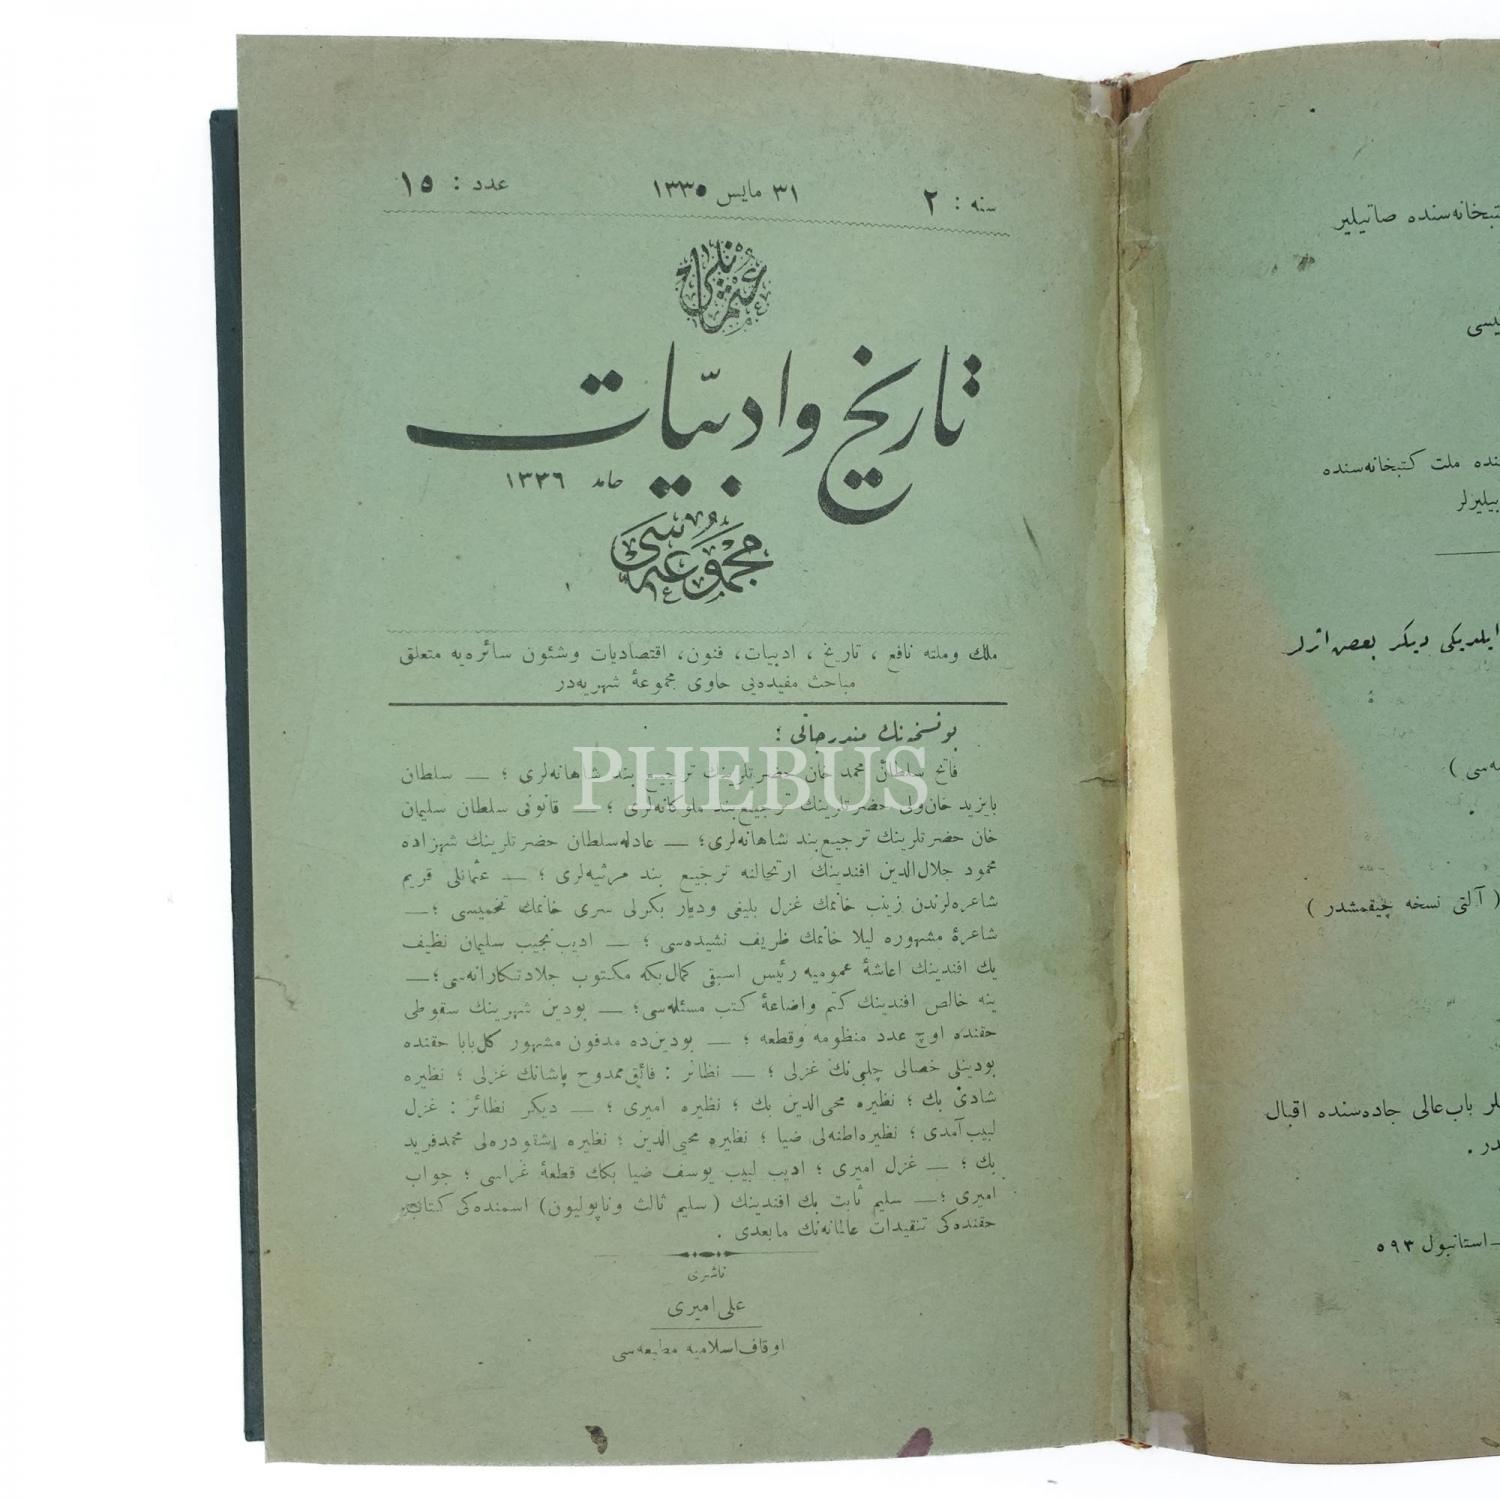 سنه : ٢
٣١ مايس ١٣٣٥
عدد : ١٥
عثمانلى
تاريخ وادبيات
حامد ١٣٣٦
مجموعه‌سى
ملك وملته نافع ، تاريخ ، ادبيات ، فنون، اقتصاديات وشئون سائره‌يه متعلق
مباحث مفيده‌يى حاوى مجموعهٔ شهريه‌در
بو نسخه‌نك مندرجاتى :
فاتح سلطان محمد خان حضرتلرينك ترجيع بند شاهانه‌لرى ؛ — سلطان
بايزيد خان‌ولى حضرتلرينك ترجيع‌بند ملوكانه‌لرى ؛ — قانونى سلطان سليمان
خان حضرتلرينك ترجيع‌بند شاهانه‌لرى؛ — عادله‌سلطان حضرتلرينك شهزاده
محمود جلال‌الدين افندينك ارتحالنه ترجيع بند مرثيه‌لرى ؛ — عثمانلى قريم
شاعره‌لرندن زينب خانمك غزل بليغى وديار بكرلى سرى خانمك تخميسى ؛—
شاعرهٔ مشهوره ليلا خانمك ظريف نشيده‌سى ؛ — اديب‌نجيب سليمان نظيف
بك افندينك اعاشهٔ عموميه رئيس اسبقى كمال‌بكه مكتوب جلادتكارانه‌سى ؛—
ينه خالص افندينك كتم واضاعهٔ كتب مسئله‌سى ؛ — بودين شهرينك سقوطى
حقنده اوچ عدد منظومه وقطعه ؛ — بودين‌ده مدفون مشهور كل‌بابا حقنده
بودينلى خصالى چلبى‌نك غزلى ؛ — نظائر : فائق‌ممدوح پاشانك غزلى ؛ نظيره
شادى بك ؛ نظيره محى‌الدين بك ؛ نظيره اميرى ؛ — ديكر نظائر : غزل
لبيب‌آمدى ؛ نظيره‌اطنه‌لى ضيا ؛ نظيره محيى‌الدين ؛ نظيره اشقودره‌لى محمدفريد
بك ؛ — غزل اميرى ؛ اديب لبيب يوسف ضيا بكك قطعهٔ غراسى ؛ جواب
اميرى ؛ — سليم ثابت بك افندينك ( سليم ثالث وناپوليون) اسمنده‌كى كتابلرى
حقنده‌كى تنقيدات عالمانه‌نك مابعدى .
ناشرى
على اميرى
اوقاف‌اسلاميه مطبعه‌سى
PHEBUS
كتبخانه‌سنده صاتيلير
ملت كتبخانه‌سنده
ايلديكى ديكر بعض اثرلر
( آلتى نسخه چيقمشدر )
باب‌عالى جاده‌سنده اقبال
استانبول ٥٩٣